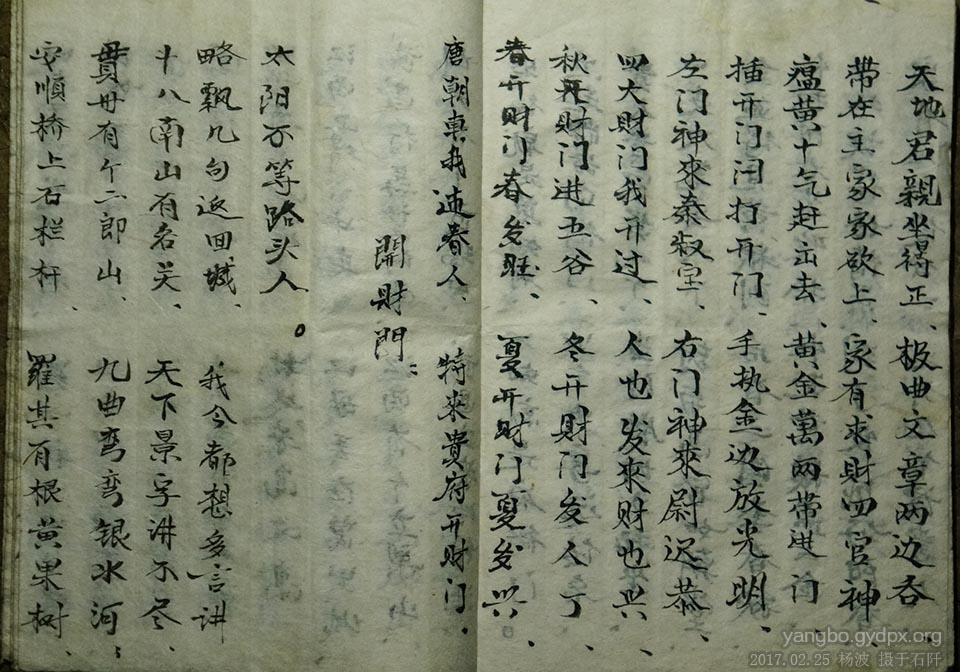 安順桥上石栏杆、羅其有根黄果树、
貫母有个二郎山、九曲弯弯银水河、
十八南山有名关、天下景字讲不尽、
略飘几句返回城、我今都想多言讲
太阳不等路头人。
開財門
唐朝真我迎春人、特來貴府开财门、
春开财门春发旺、夏开财门夏发兴、
秋开财门进五谷、冬开财门发人丁、
四大财门我开过、人也发來财也兴、
左门神來秦叔宝、右门神來尉迟恭、
插开门闩打开门、手执金边放光明、
瘟黄十气赶出去、黄金萬两带进门
带在主家家欲上、家有求财四官神
天地君親坐得正、板曲文章两边吞
yangbo.gydpx.org
2017.02.25 杨波 摄于石阡